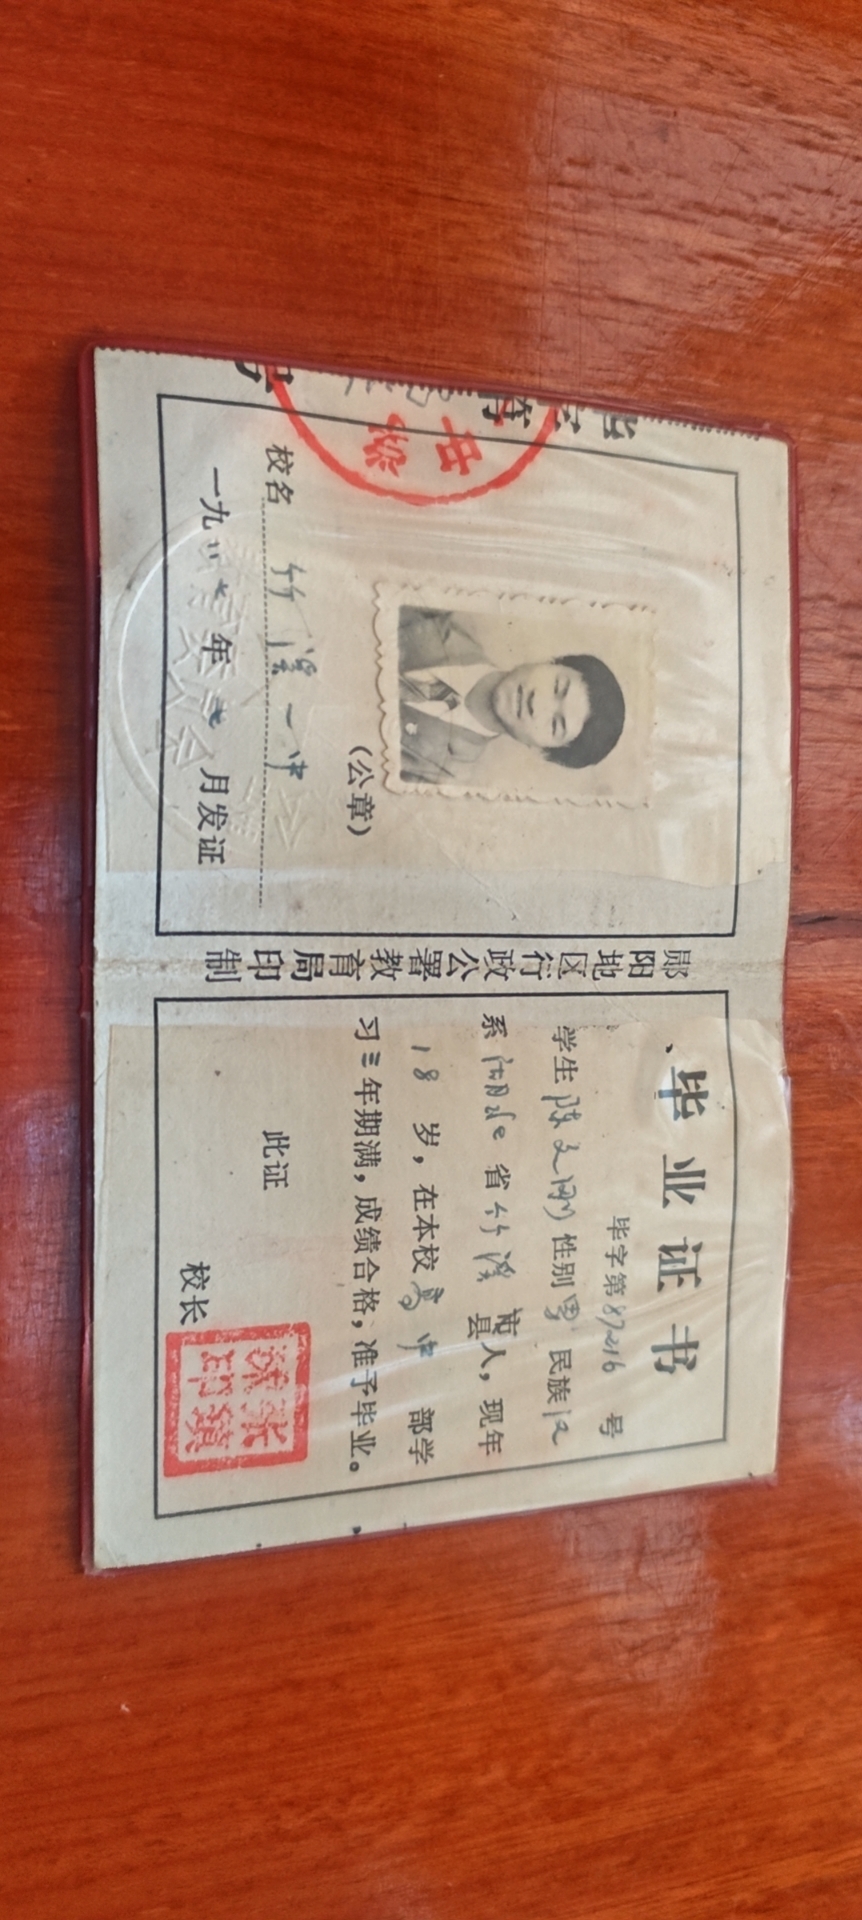 校名 竹溪一中
一九八七年 七月发证
(公章)
郧阳地区行政公署教育局印制
毕业证书
毕字第87216号
学生 陈文刚 性别 男 民族 汉
系 湖北 省 竹溪 市县人，现年
18 岁，在本校 高中 部学
习三年期满，成绩合格，准予毕业。
此证
校长